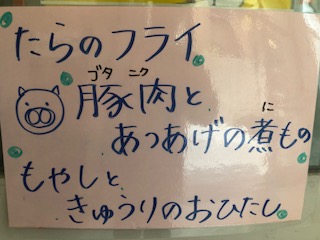 たらのフライ
ブタ ニク
豚肉と
に
あつあげの煮もの
もやしと
きゅうりのおひたし